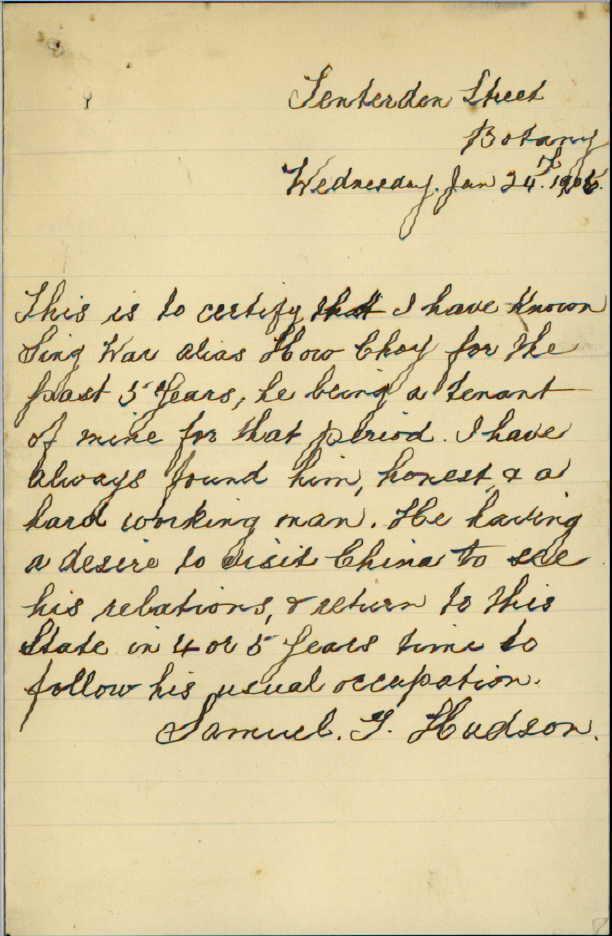 Tenterden Street
Botany
Wednesday. Jan 24th. 1906.
This is to certify that I have known
Sing War alias How Choy for the
past 5 Years, he being a tenant
of mine for that period. I have
always found him, honest, & a
hard working man. He having
a desire to visit China to see
his relations, & return to this
State in 4 or 5 Years time to
follow his usual occupation.
Samuel. G. Hudson.